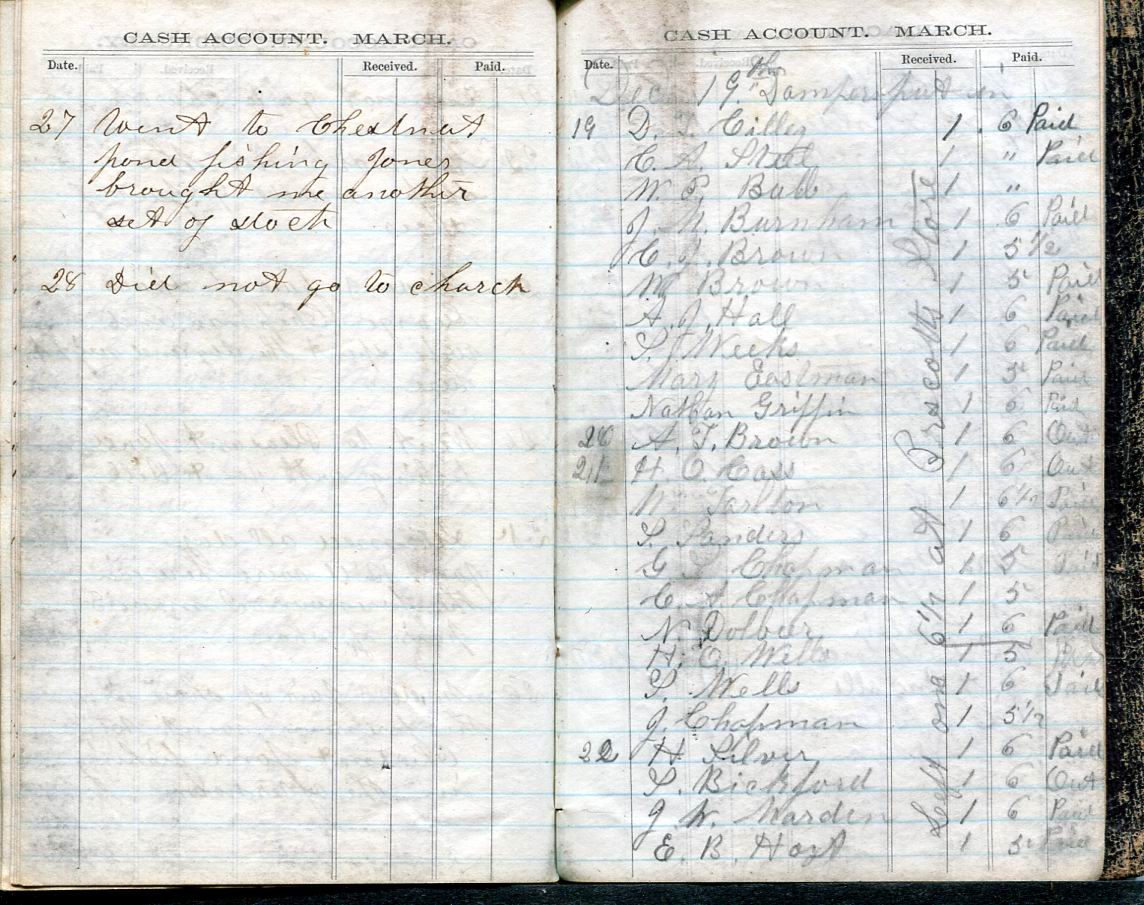 CASH ACCOUNT. MARCH.
Date. Received. Paid.
27 Went to Chestnut
pond fishing Jones
brought me another
set of stock
28 Did not go to church
CASH ACCOUNT. MARCH.
Date. Received. Paid.
Dec 19th Damper put in
19 D. T. Cilley 1 6 Paid
C. A. Stall 1 " Paid
W. P. Bubb 1 "
J. M. Burnham 1 6 Paid
C. J. Brown 1 5 1/2
M Brown 1 5 Paid
A. J. Hall 1 6 Paid
S. J Weeks 1 6 Paid
Mary Eastman 1 5 Paid
Nathan Griffin 1 6 Paid
20 A. T. Brown 1 6 Out
21 H. O. Cass 1 6 Out
W. Tarlton 1 6 1/2 Paid
S. Sanders 1 6 Paid
G Chapman 1 5 Paid
C. A Chapman 1 5
N. Dolbeer 1 6 Paid
H. O. Wells 1 5 Paid
S. Wells 1 6 Paid
J. Chapman 1 5 1/2
22 H. Silver 1 6 Paid
S. Bickford 1 6 Out
J. W. Marden 1 6 Paid
E. B. Hoyt 1 5 Paid
Left one 6 1/2 at Prscotts Store